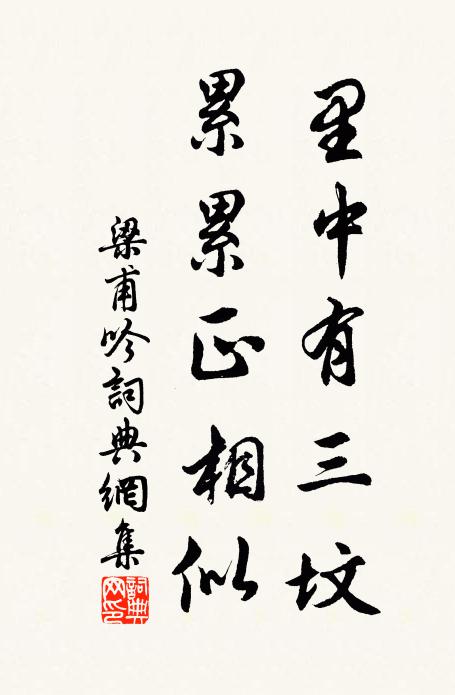 里中有三墳
累累正相似
梁甫吟詞典網集
詞典网印